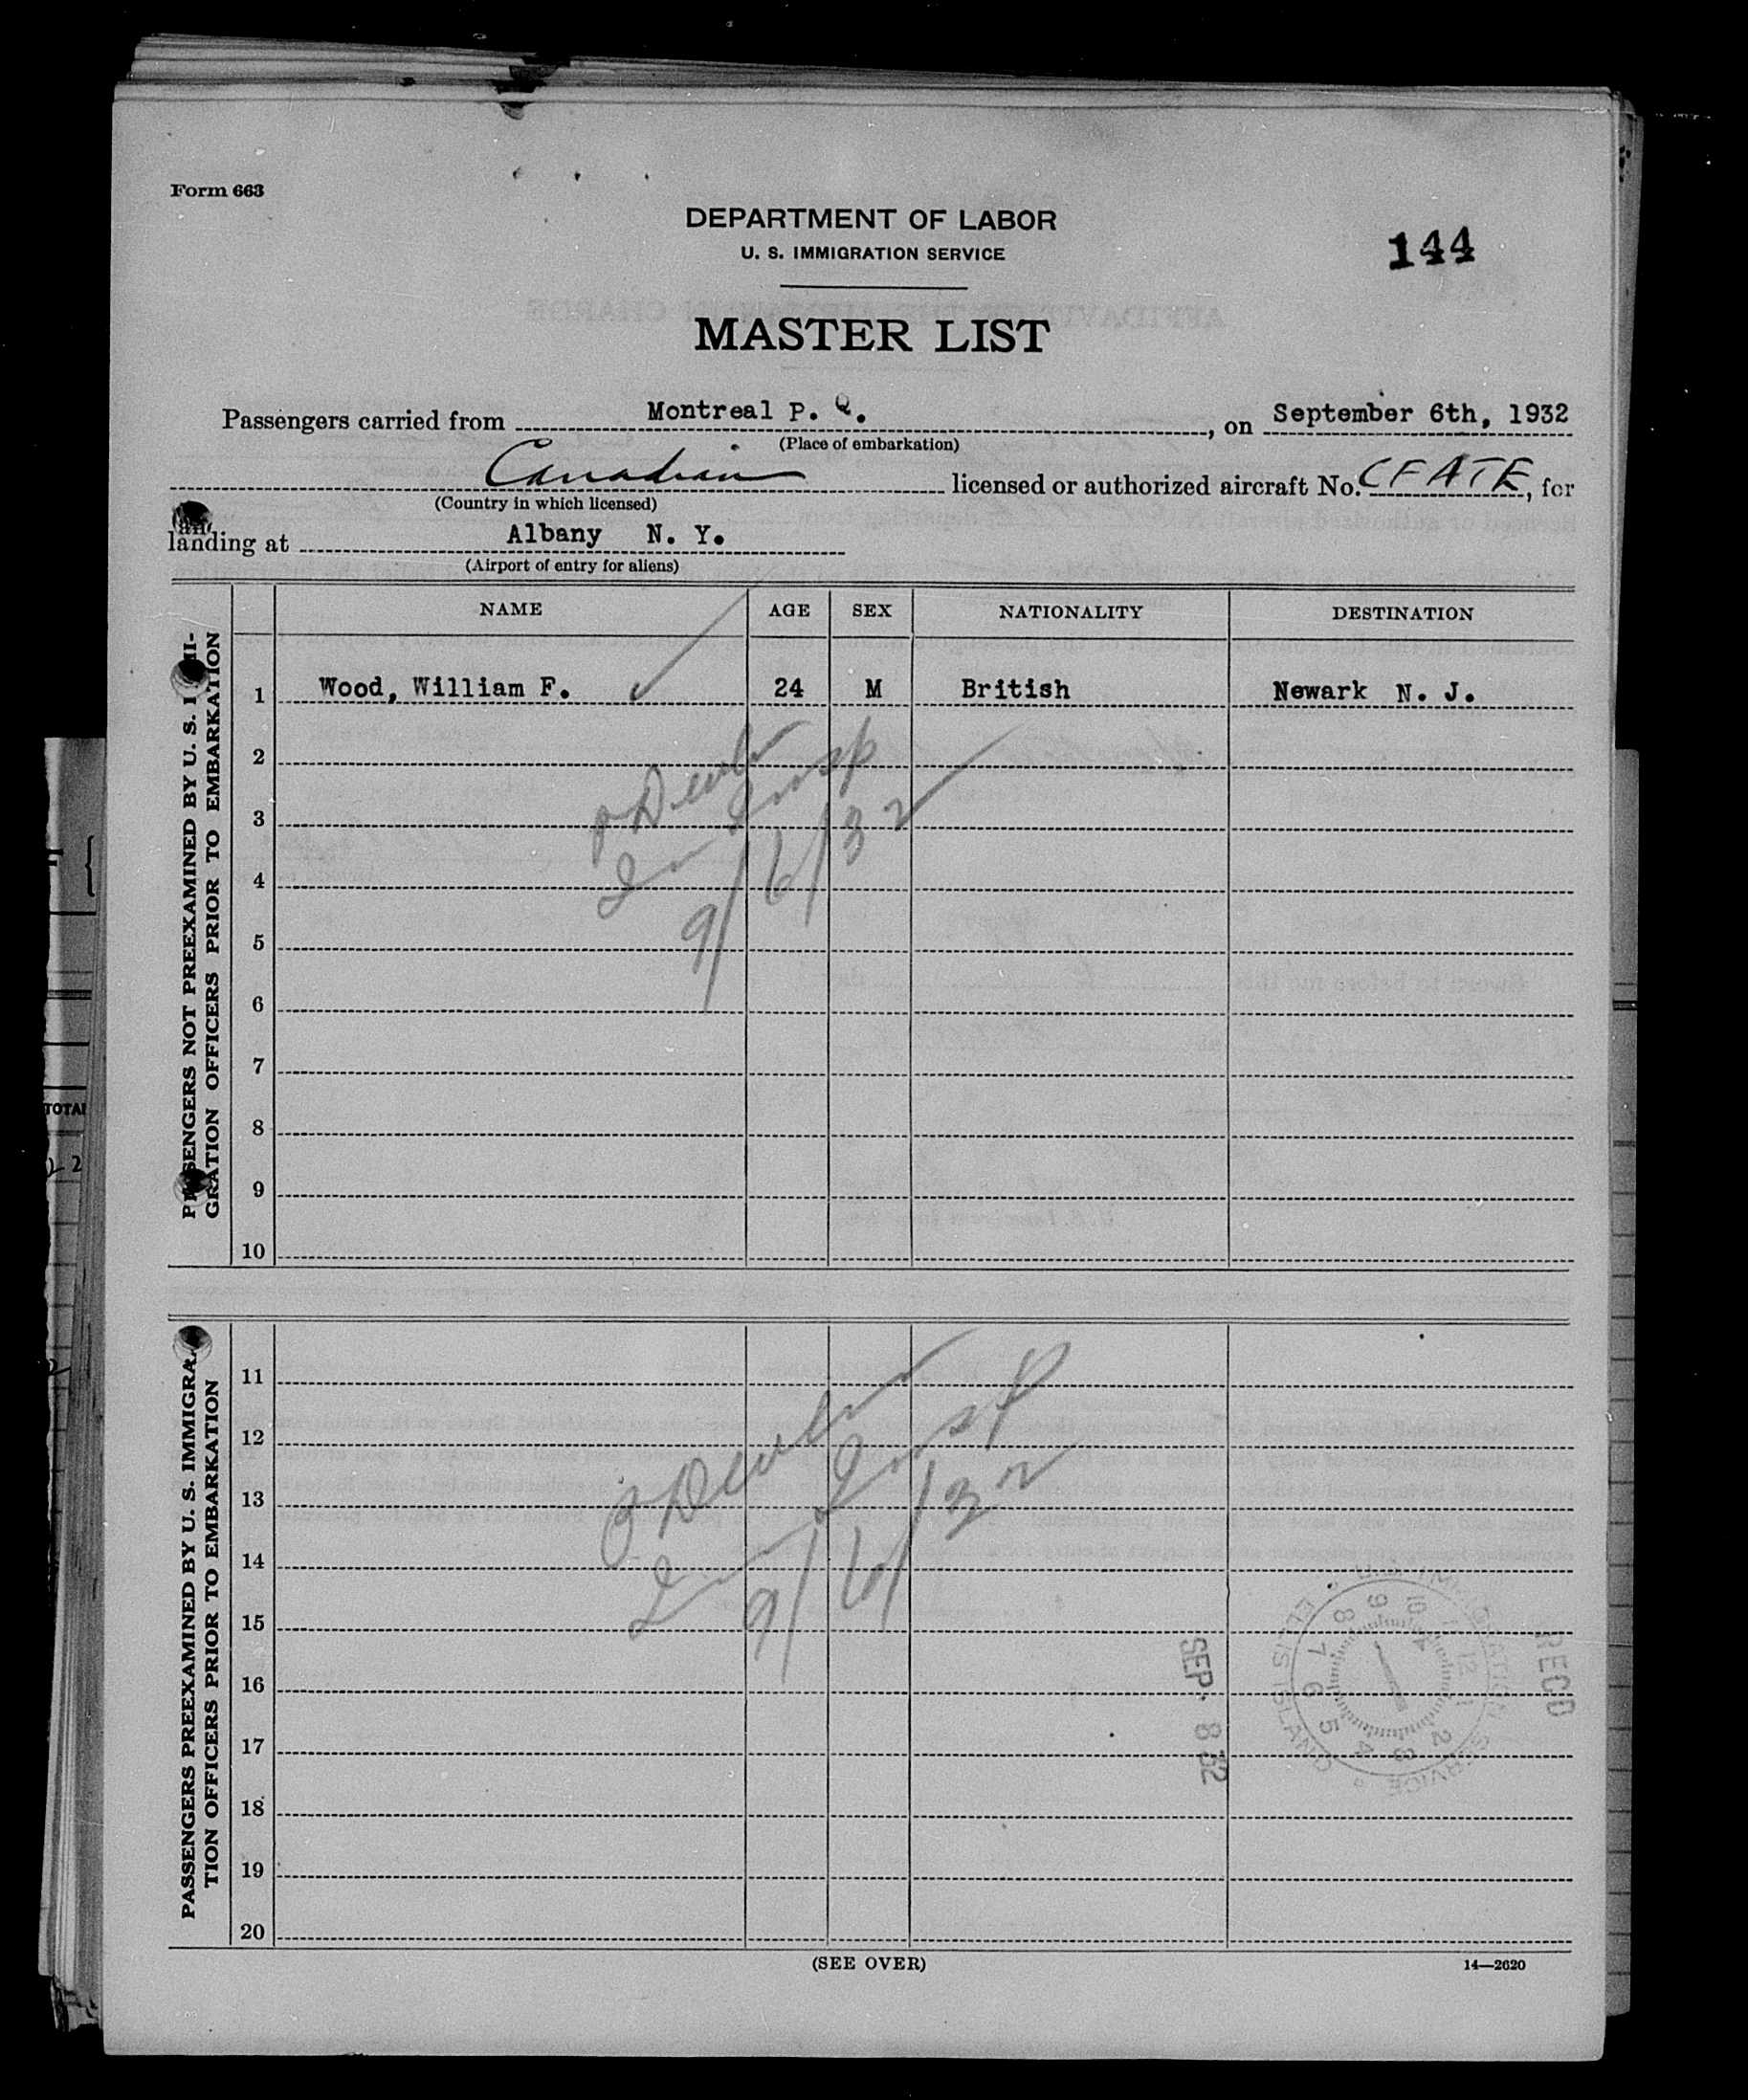 Form 663
DEPARTMENT OF LABOR
U. S. IMMIGRATION SERVICE
144
MASTER LIST
Passengers carried from Montreal P. Q. , on September 6th, 1932
(Place of embarkation)
Canadian licensed or authorized aircraft No. CFATE, for
(Country in which licensed)
landing at Albany N. Y.
(Airport of entry for aliens)
NAME AGE SEX NATIONALITY DESTINATION
PASSENGERS NOT PREEXAMINED BY U. S. IMMI-
GRATION OFFICERS PRIOR TO EMBARKATION
1 Wood, William F. ✓ 24 M British Newark N. J.
2
3
4
5
6
7
8
9
10
Insp
9/6/32
PASSENGERS PREEXAMINED BY U. S. IMMIGRA-
TION OFFICERS PRIOR TO EMBARKATION
11
12
13
14
15
16
17
18
19
20
Insp
9/6/32
SEP. 8 32
U.S. IMMIGRATION SERVICE
ELLIS ISLAND
1 2 3 4 5 6 7 8 9 10 11 12
RECD
(SEE OVER)
14—2620
TOTAL
22